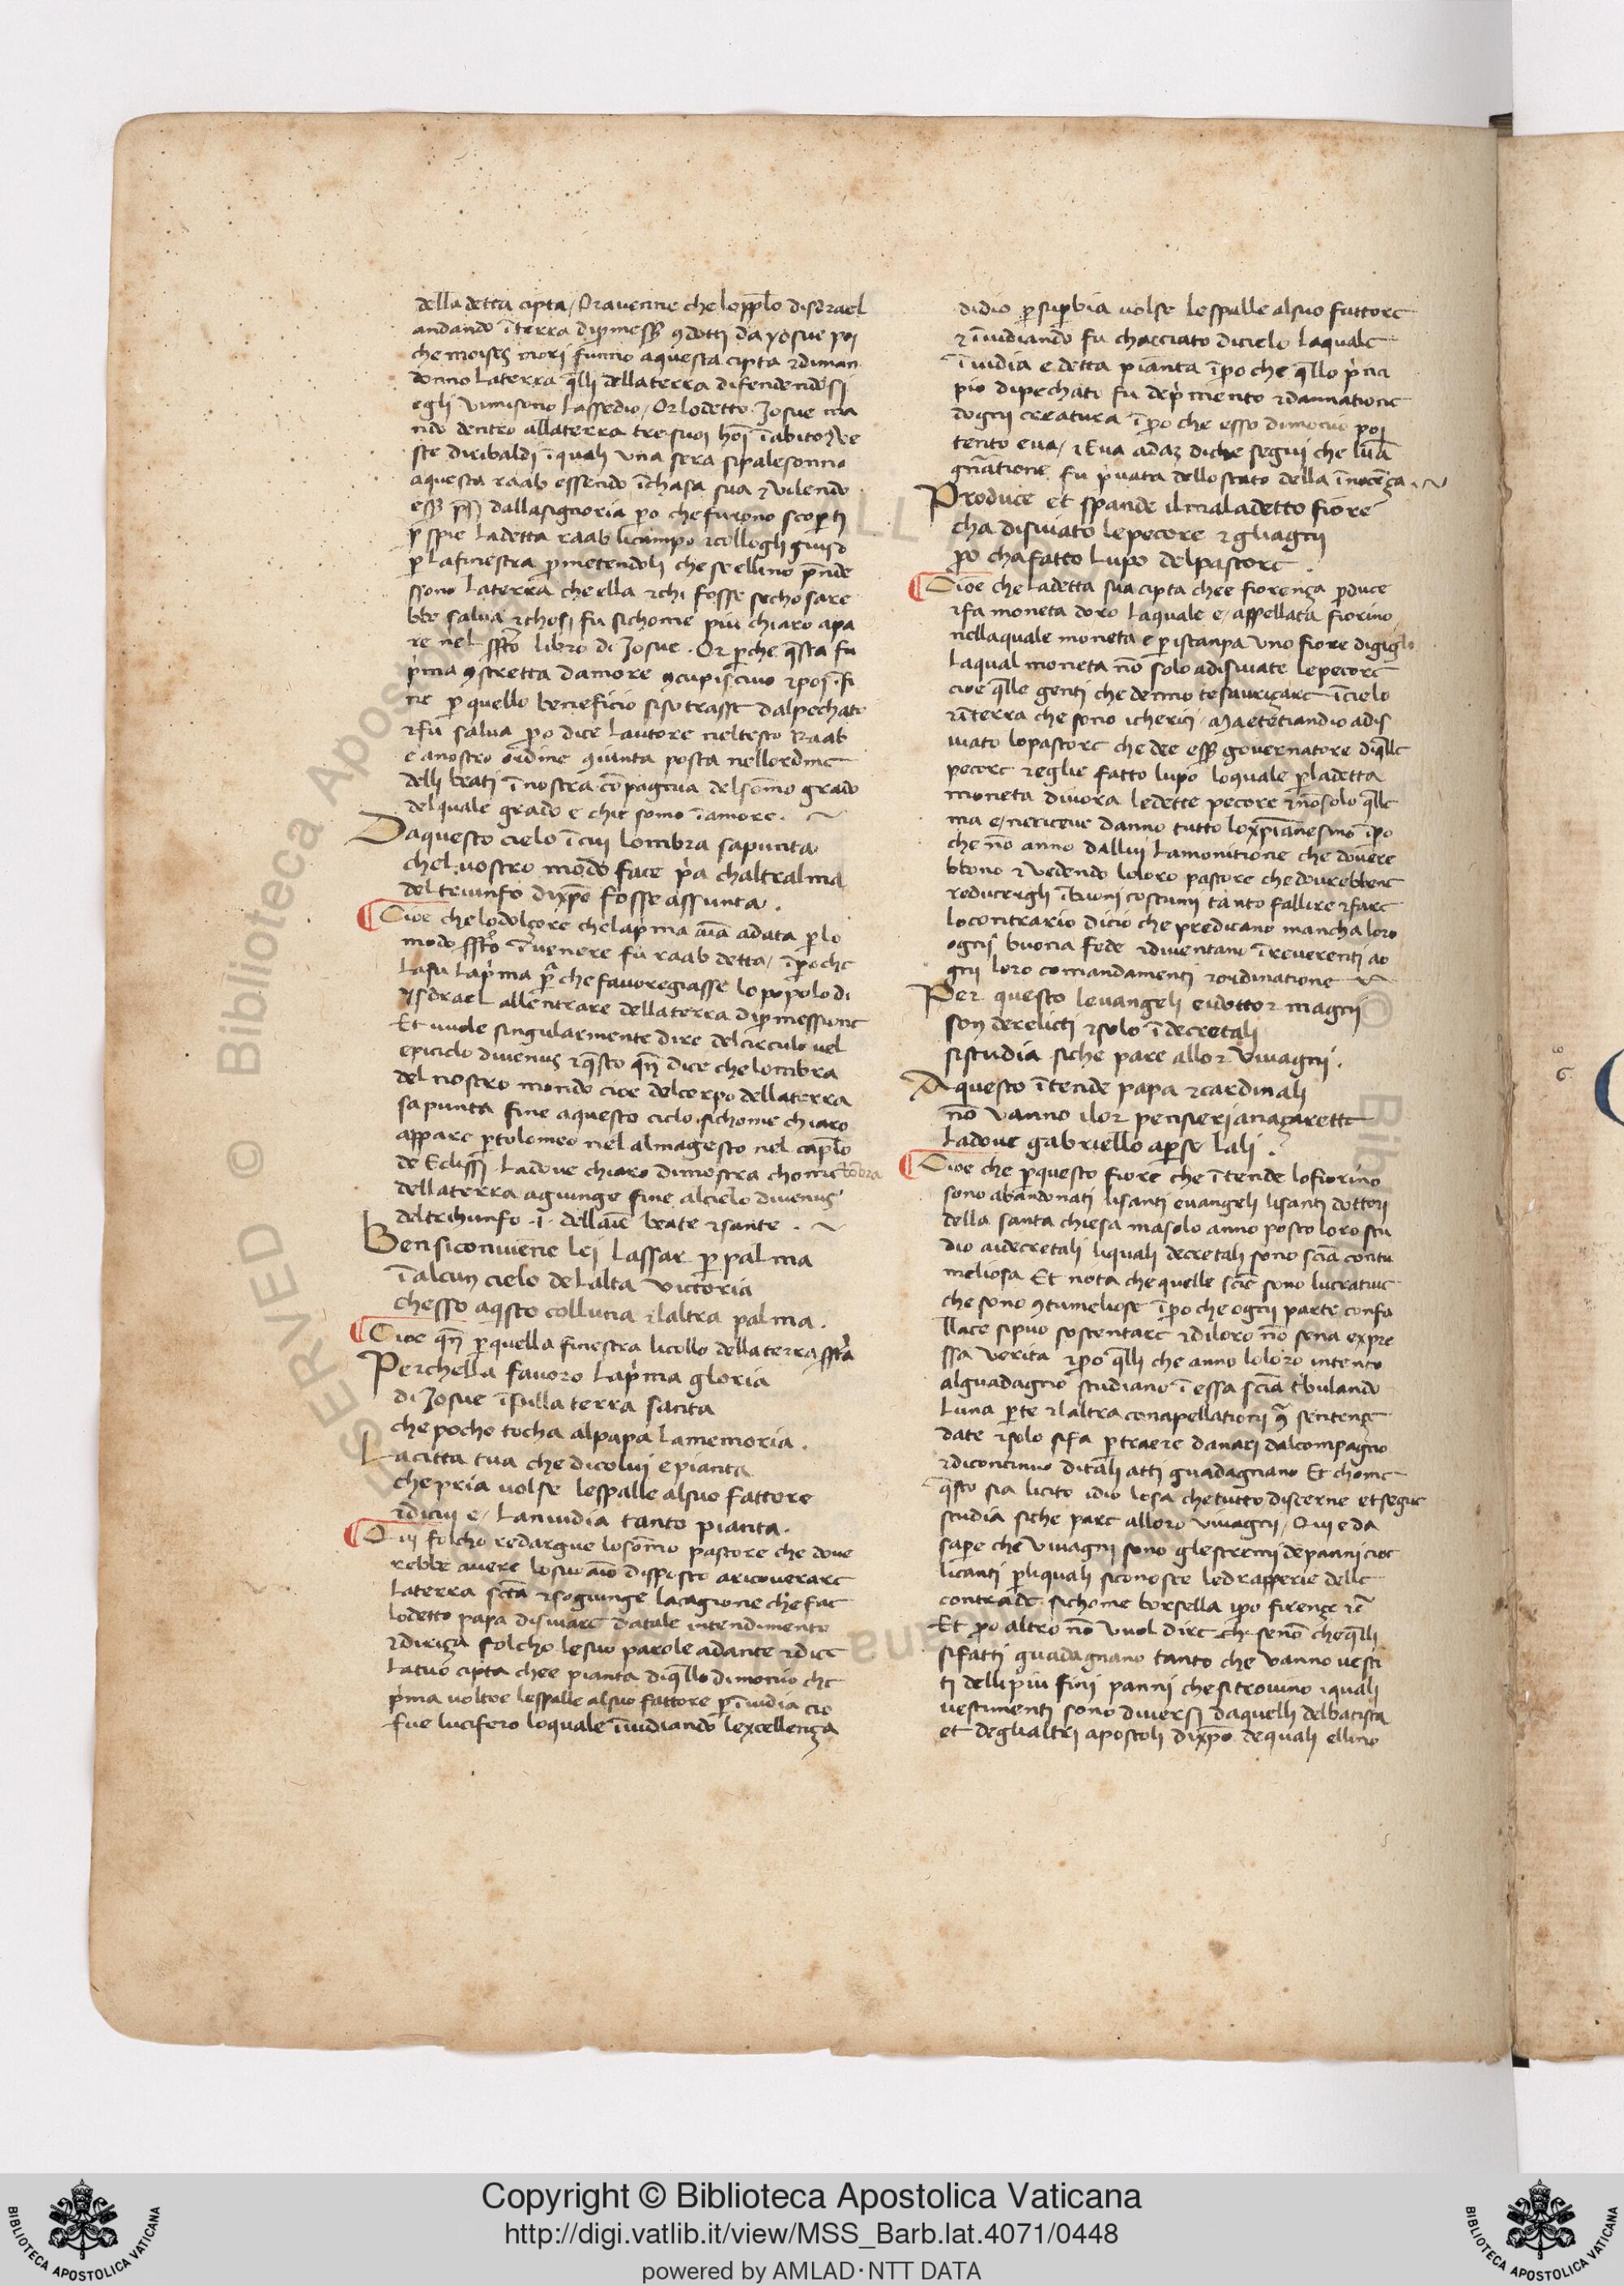 della detta cipta / Or avenne che lo pp̄lo disdrael
andando ī terra di ꝓmess ꝯdotti da yosue poi
che moises morì funno aquesta cipta ⁊ diman
donno la terra q̄lli della terra difendendosi
egli vi misono lassedio / Or lo detto Josue ma
ndo dentro alla terra tre suoi hoī ī abito ⁊ ve
ste di ribaldi i quali una sera si palesonno
aquesta raab essendo ī chasa sua ⁊ vilendo
dalla signoria ꝑo che furono scoꝑti
ꝑ spie La detta raab li campo ⁊ collogli giuso
ꝑ la finestra ꝓmetendoli che se ellino p̄nde
ssono la terra che ella ⁊ chi fosse secho sare
bbe salva ⁊ chosi fu sichome piu chiaro apa
re nel libro di Josue . Or ꝑ che q̄sta fu
p̍ma ꝯstretta damore ꝯcupiscivo ⁊ poi ī fi
ne ꝑ quello beneficio si sotrasse dal pechato
⁊ fu salva ꝑo dice lautore nel testo Raab
e a nostro ordine ꝯgiunta posta nellordine
delli beati ī nostra cōpagnia del somō grado
del quale grado e chie sono ī amore .
Da questo cielo ī cui lombra sapunta
chel vostro mōdo face p̍a chaltralma
del triunfo di xp̄o fosse assunta .
Cioe che lo dolçore che la p̍ma aīa a data ꝑ lo
modo ī venere fu raab detta / ī ꝑo che
la fu la p̍ma che favoregiasse lo popolo di
ysdrael allentrare della terra di ꝓmessione
Et vuole singularmente dire del circulo vel
epiciclo di venus ⁊ q̄sto qn̄ dice che lombra
del nostro mondo cioe del corpo della terra
sapunta fine aquesto cielo sichome chiaro
appare ꝑ tolomeo nel almagesto nel cap̄lo
de Eclissi La dove chiaro dimostra chome lombra
della terra agiunge fine al cielo di venus
del trihunfo .i. dellaīe beate ⁊ sante .
Ben si conviene lei lassar ꝑ palma
ī alcun cielo de lalta victoria
chesso aq̄sto collutia ⁊ laltra palma .
Cioe qn̄ ꝑ quella finestra li collo della terra
Perchella favoro la p̍ma gloria
di Josue ī sulla terra santa
che pocho tocha al papa la memoria .
La citta tua che di colui e pianta
che pria volse le spalle al suo fattore
⁊ di cui e / La nvidia tanto pianta .
Qui folcho redargue lo somō pastore che dove
rebbe avere lo suo aīo disposto a ricoverare
la terra scta ⁊ sogiunge la cagione che fae
lo detto papa disviare da tale intendimento
⁊ diriça folcho le suo parole a dante ⁊ dice
La tuo cipta che e pianta di q̄llo dimonio che
p̍ma voltoe le spalle al suo fattore ꝑ ī vidia cio
fue lucifero lo quale ī vidiando lexcellença
di dio ꝑ suꝑbia volse le spalle al suo fattore
⁊ ī vidiando fu chacciato di cielo la quale
ī vidia e detta pianta ī ꝑo che q̄llo p̍nci
pio di pechato fu depimento ⁊ dannatione
dogni creatura ī ꝑo che esso dimonio poi
tento eva / ⁊ Eva adaꝫ di che segui che luā
gn̄atione fu p̍vata dello stato della īnocēça .
Produce et spande il maladetto fiore
cha disviato le pecore ⁊ gli agni
ꝑo cha fatto lupo del pastore .
Cioe che la detta sua cipta che e fiorença ꝓduce
⁊ fa moneta doro la quale e / appellata fiorino
nella quale moneta e ꝑ istanpa uno fiore di giglo
la qual moneta nō solo a disviate le pecore
cioe q̄lle genti che denno tesauriçare ī cielo
⁊ ī terra che sono i cherici . Ma etetiandio a dis
viato lo pastore che dee governatore di q̄lle
pecore ⁊ eglie fatto lupo lo quale ꝑ la detta
moneta divora le dette pecore ⁊ nō solo q̄lle
ma e / ne riceve danno tutto lo xp̄ianesimo ī ꝑo
che nō anno da llui la monitione che dovere
bbono ⁊ vedendo lo loro pastore che dovrebbene
reducergli ī buoni costumi tanto fallire ⁊ fare
lo contrario di cio che predicano mancha loro
ogni buona fede ⁊ diventano ī reverenti ao
gni loro comandamenti ⁊ ordinatione
Per questo levangeli ei dottor magni
son derelicti ⁊ solo ī decretali
si studia siche pare a llor vivagni .
A questo ītende papa ⁊ cardinali
nō vanno i lor pensieri a naçarette
la dove gabriello aꝑse lali .
Cioe che ꝑ questo fiore che ītende lo fiorino
sono abandonati li santi evangeli li santi dottori
della santa chiesa ma solo anno posto loro stu
dio ai decretali li quali decretali sono scīa contu
meliosa Et nota che quelle scīe sono lucrative
che sono ꝯtumeliose ī ꝑo che ogni parte con fa
llace si puo sostentare ⁊ di loro nō sena expre
ssa verita ⁊ ꝑo q̄lli che anno lo loro intento
al guadagno studiano ī essa scīa t̍bulando
luna ꝑte ⁊ laltra con apellationi sentençe
date ⁊ solo si fa ꝑ traere danari dal compagno
⁊ di continuo di tali atti guadagnano Et chome
q̄sto sia licito idio lo sa che tutto discerne et segue
studia siche pare a lloro vivagni / Qui e da
saꝑe che vivagni sono gle stremi de panni cioe
li canti ꝑ li quali si conosce le drapperie delle
contrade sichome borsella ipo firençe ⁊c̄
Et ꝑo altro nō vuol dire senō che q̄lli
sifatti guadagnano tanto che vanno vesti
ti delli piu fini panni che si trovino i quali
vestimenti sono diversi da quelli del batista
et degli altri apostoli di xp̄o de quali ellino
Copyright © Biblioteca Apostolica Vaticana
http://digi.vatlib.it/view/MSS_Barb.lat.4071/0448
powered by AMLAD·NTT DATA
BIBLIOTECA APOSTOLICA VATICANA
BIBLIOTECA APOSTOLICA VATICANA